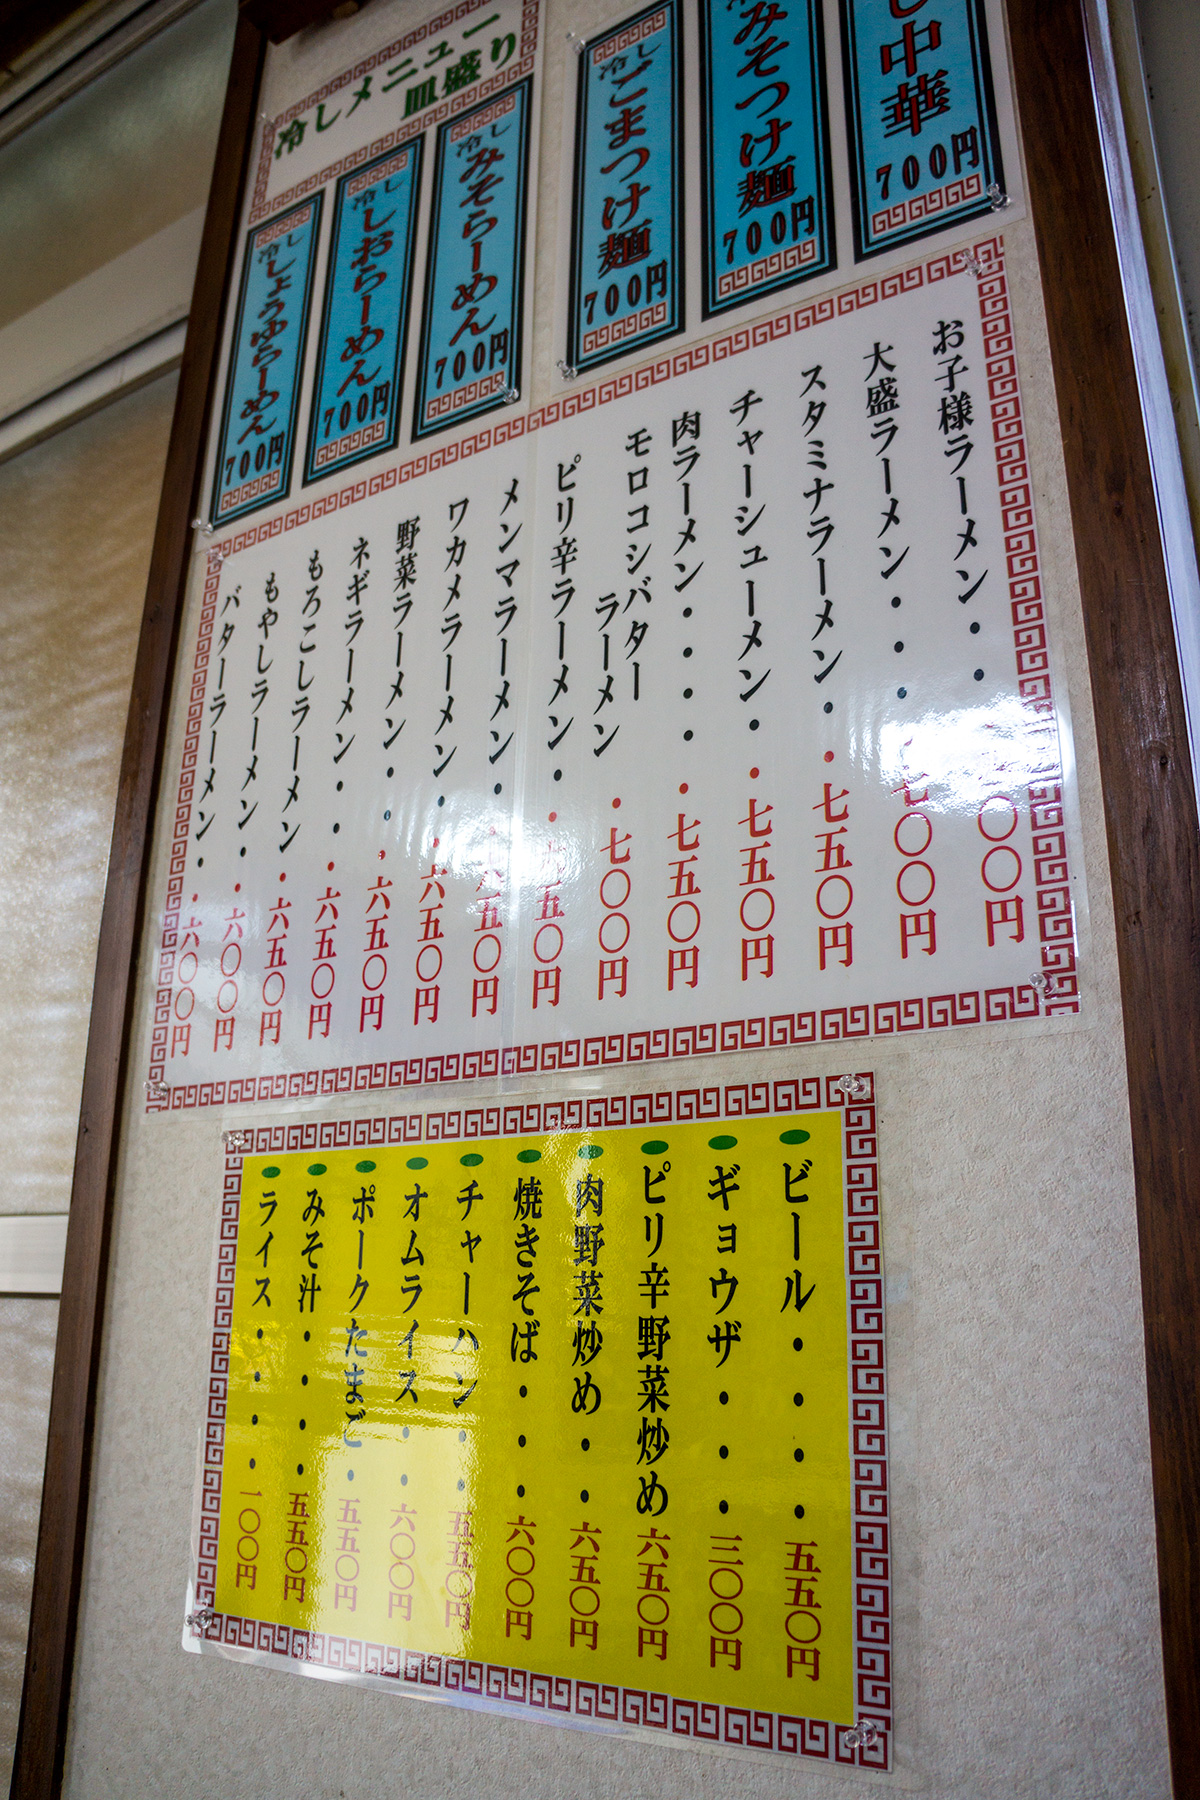 冷しメニュー
皿盛り
し中華
700円
みそつけ麺
700円
冷しごまつけ麺
700円
冷しみそらーめん
700円
冷ししおらーめん
700円
冷ししょうゆらーめん
700円
お子様ラーメン・・〇〇円
大盛ラーメン・・・七〇〇円
スタミナラーメン・・七五〇円
チャーシューメン・・七五〇円
肉ラーメン・・・・・七五〇円
モロコシバター
ラーメン・七〇〇円
ピリ辛ラーメン・・六五〇円
メンマラーメン・・六五〇円
ワカメラーメン・・六五〇円
野菜ラーメン・・・六五〇円
ネギラーメン・・・六五〇円
もろこしラーメン・六五〇円
もやしラーメン・・六〇〇円
バターラーメン・・六〇〇円
ビール・・・・五五〇円
ギョウザ・・・三〇〇円
ピリ辛野菜炒め六五〇円
肉野菜炒め・・六五〇円
焼きそば・・・六〇〇円
チャーハン・・五五〇円
オムライス・・六〇〇円
ポークたまご・五五〇円
みそ汁・・・・五五〇円
ライス・・・・一〇〇円